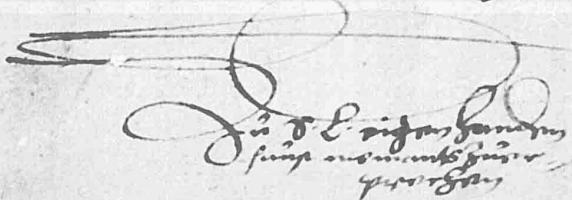 Zu S. L. eigen handen
sunst niemants zuer-
prechen